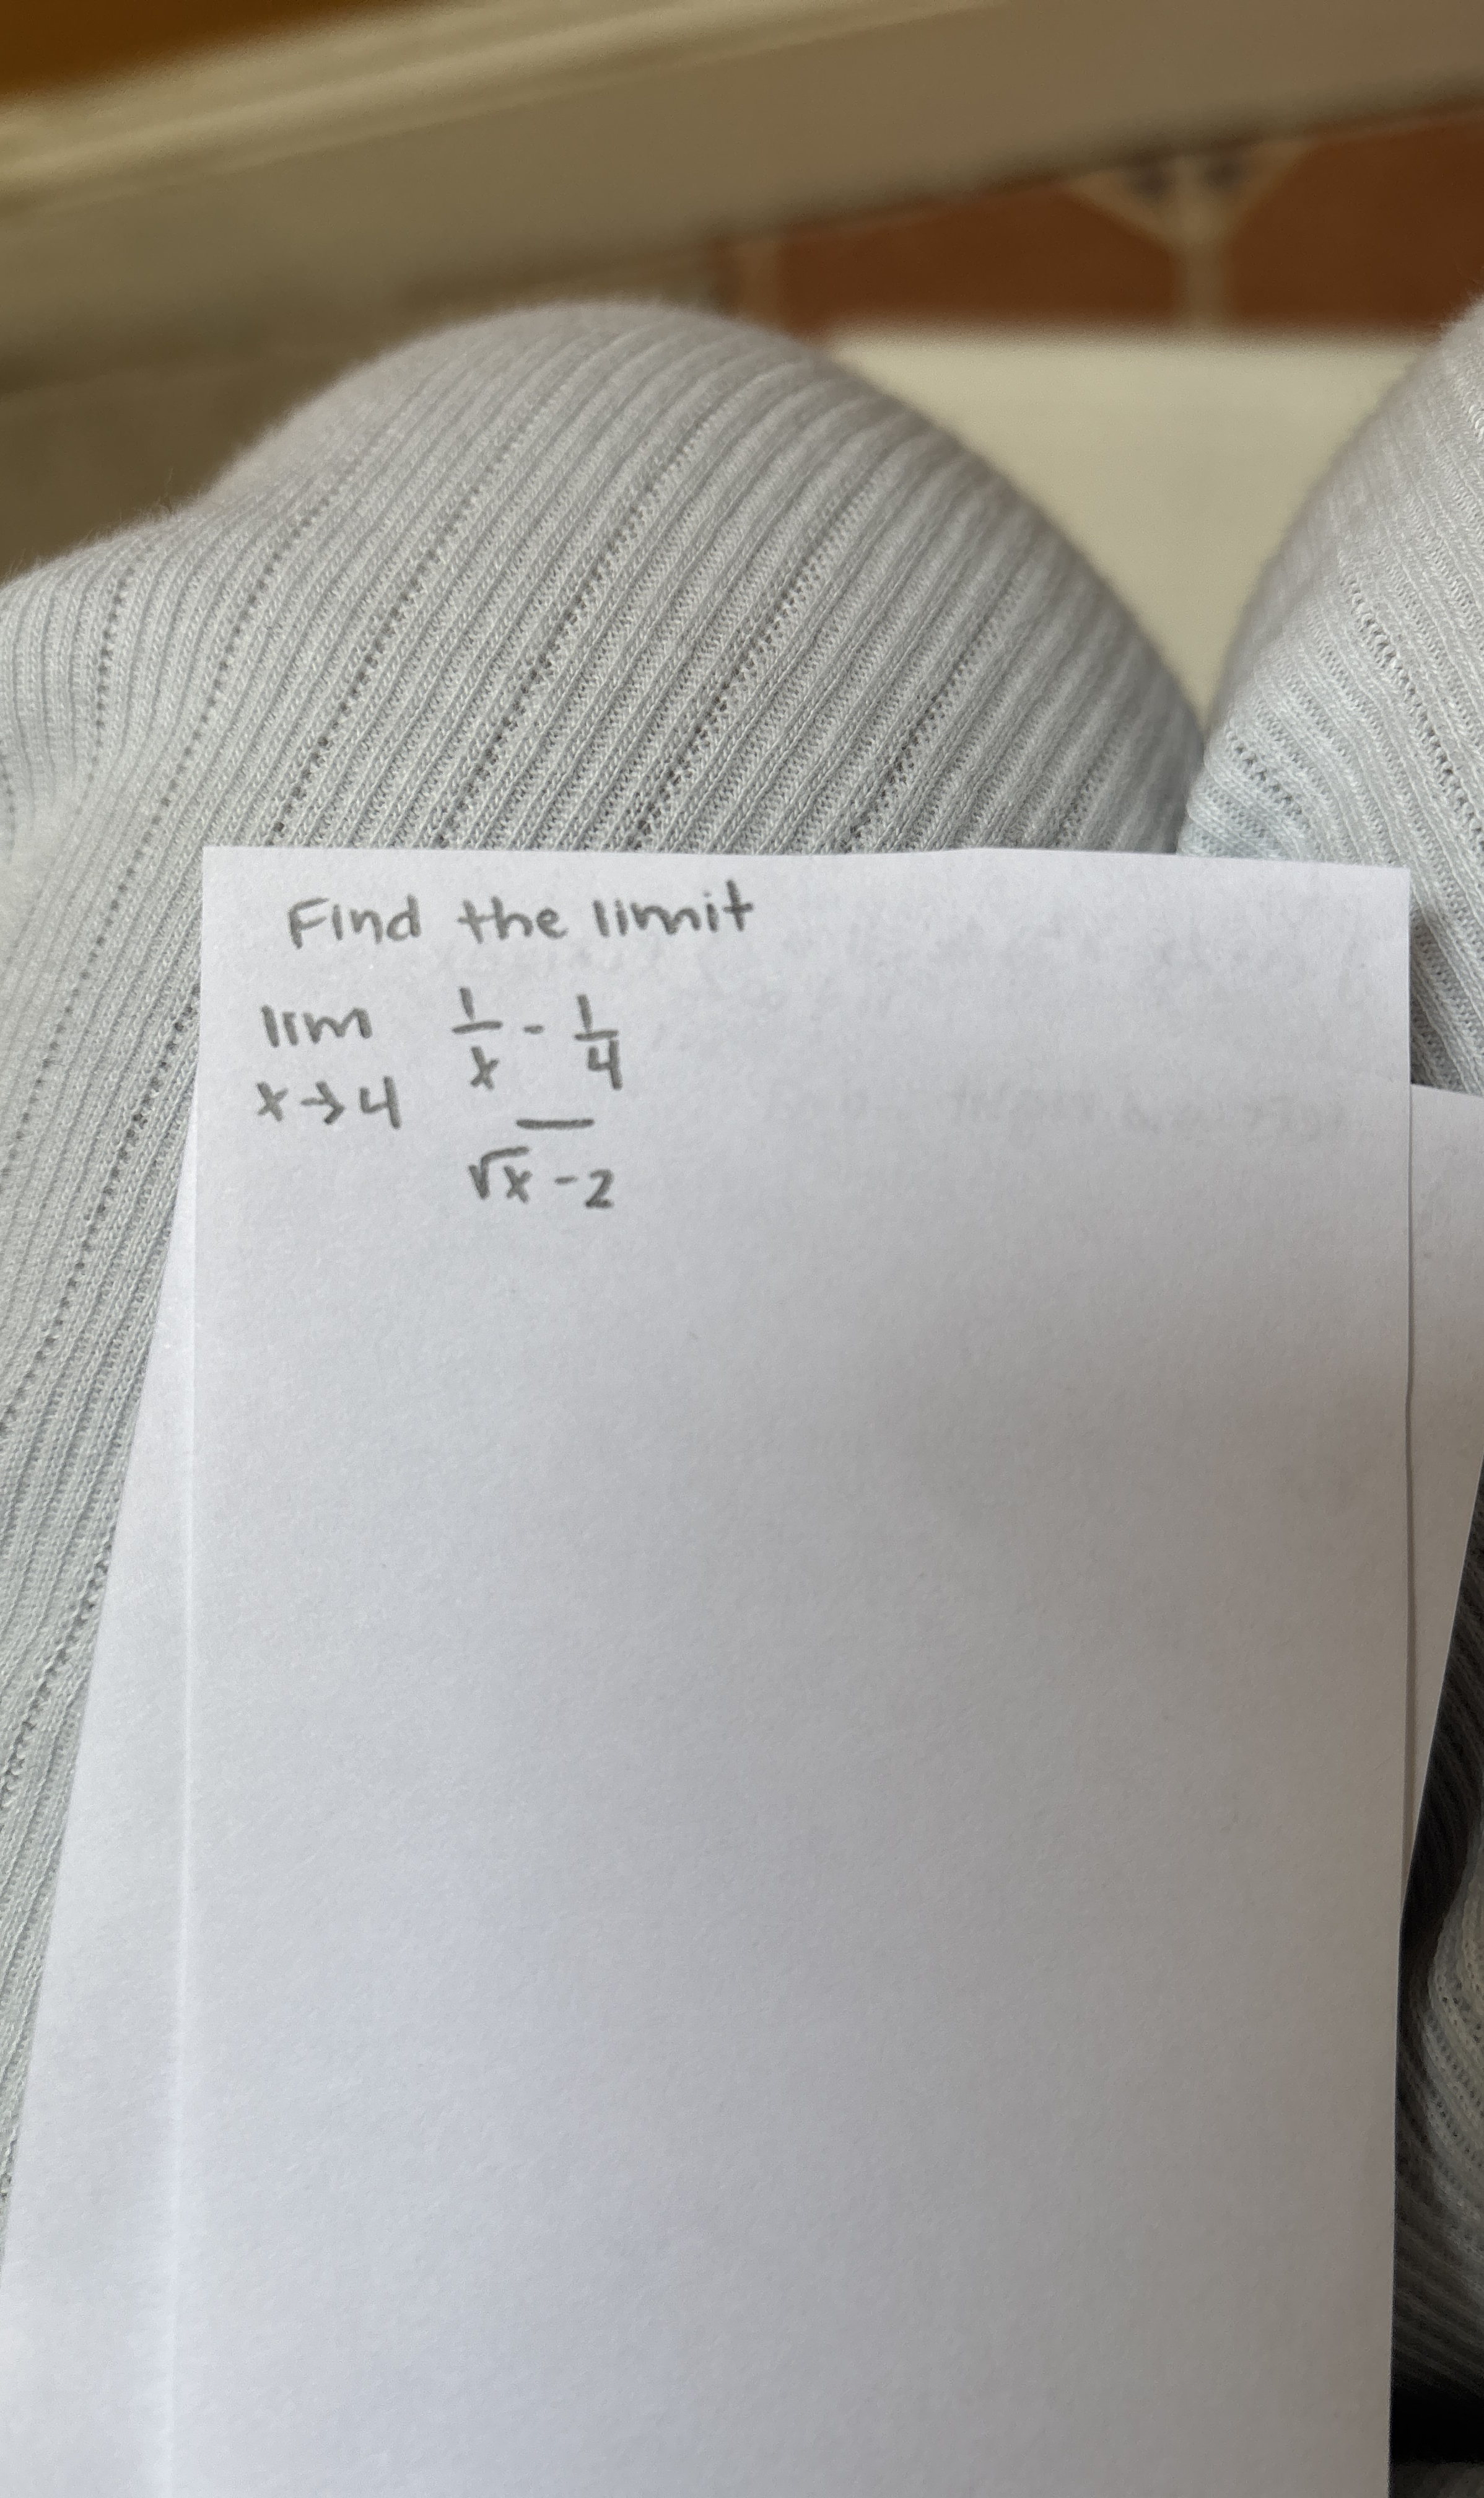 Find the limit
lim 1/x - 1/4
x→4 —
√x - 2